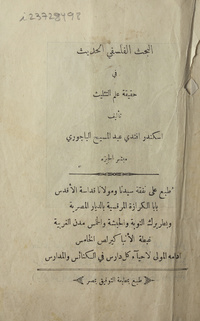 i 23728498
البحث الفلسفي الحديث
في
حقيقة علم التثليث
تأليف
اسكندر افندي عبد المسيح الباجوري
طبع على نفقة سيدنا ومولانا قداسة الأقدس
بابا الكرازة المرقسية بالديار المصرية
وبطريرك النوبة والحبشة والخمس مدن الغربية
غبطة الأنبا كيرلس الخامس
ادامه المولى لاحياء كل دارس في الكنائس والمدارس
طبع بمطبعة التوفيق بمصر